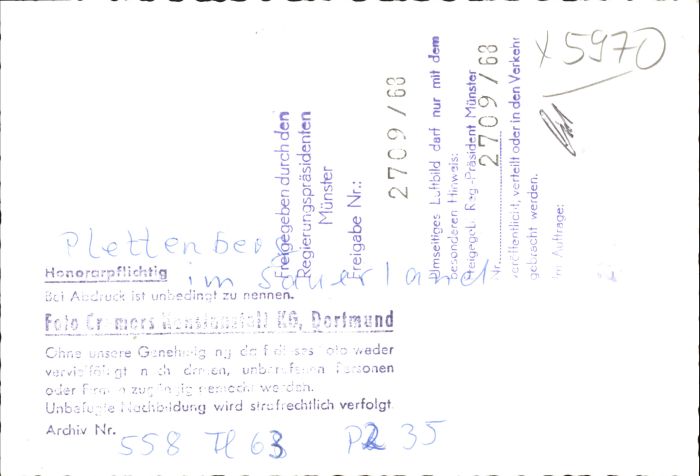 x 5970
Freigegeben durch den
Regierungspräsidenten
Münster
Freigabe Nr.:
2709/68
Umseitiges Luftbild darf nur mit dem
besonderen Hinweis:
Freigegeb. Reg.-Präsident Münster
Nr. 2709/68
veröffentlicht, verteilt oder in den Verkehr
gebracht werden.
Im Auftrage:
Plettenberg
im Sauerland
Honorarpflichtig
Bei Abdruck ist unbedingt zu nennen.
Foto Cramers Kunstanstalt KG, Dortmund
Ohne unsere Genehmigung darf dieses Foto weder
vervielfältigt noch dritten, unberufenen Personen
oder Firmen zugängig gemacht werden.
Unbefugte Nachbildung wird strafrechtlich verfolgt.
Archiv Nr. 558 Tl 63 P2 35